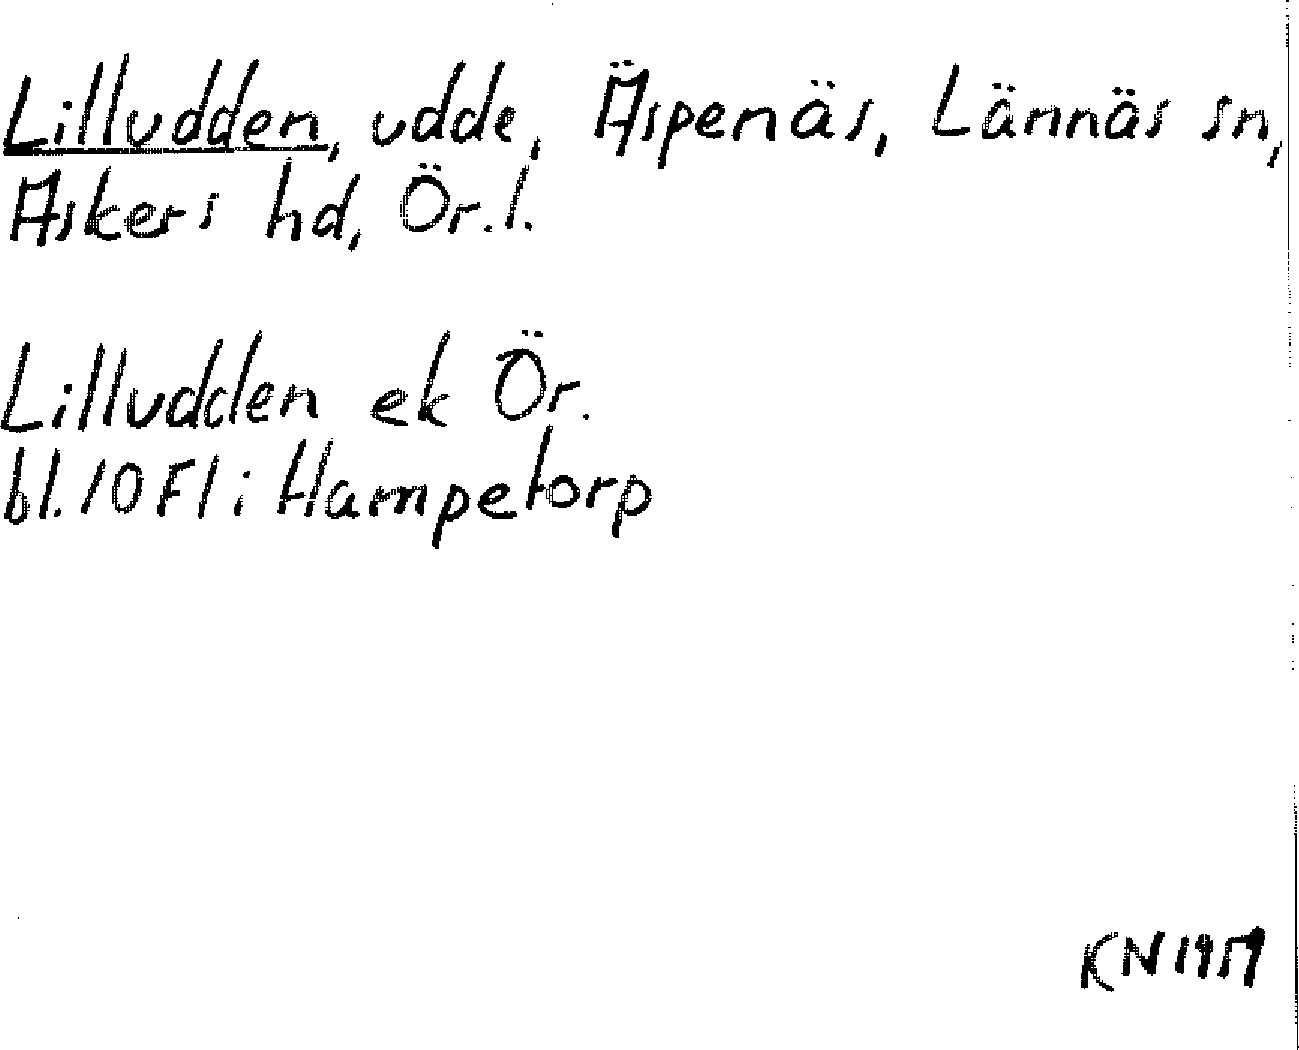 Lilludden, udde, Äspenäs, Lännäs sn,
Askers hd, Ör. l.
Lilludden ek Ör.
bl. 10 F1 i Hampetorp
KN